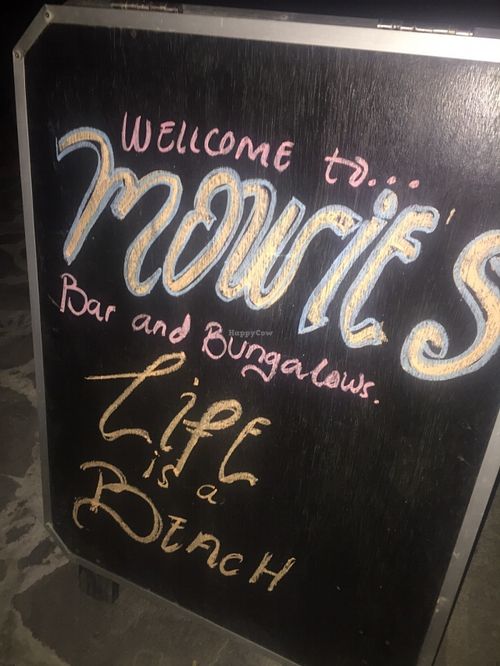 WELLCOME to...
MOWIE'S
Bar and Bungalows.
LiFE
is a
BEACH
HappyCow